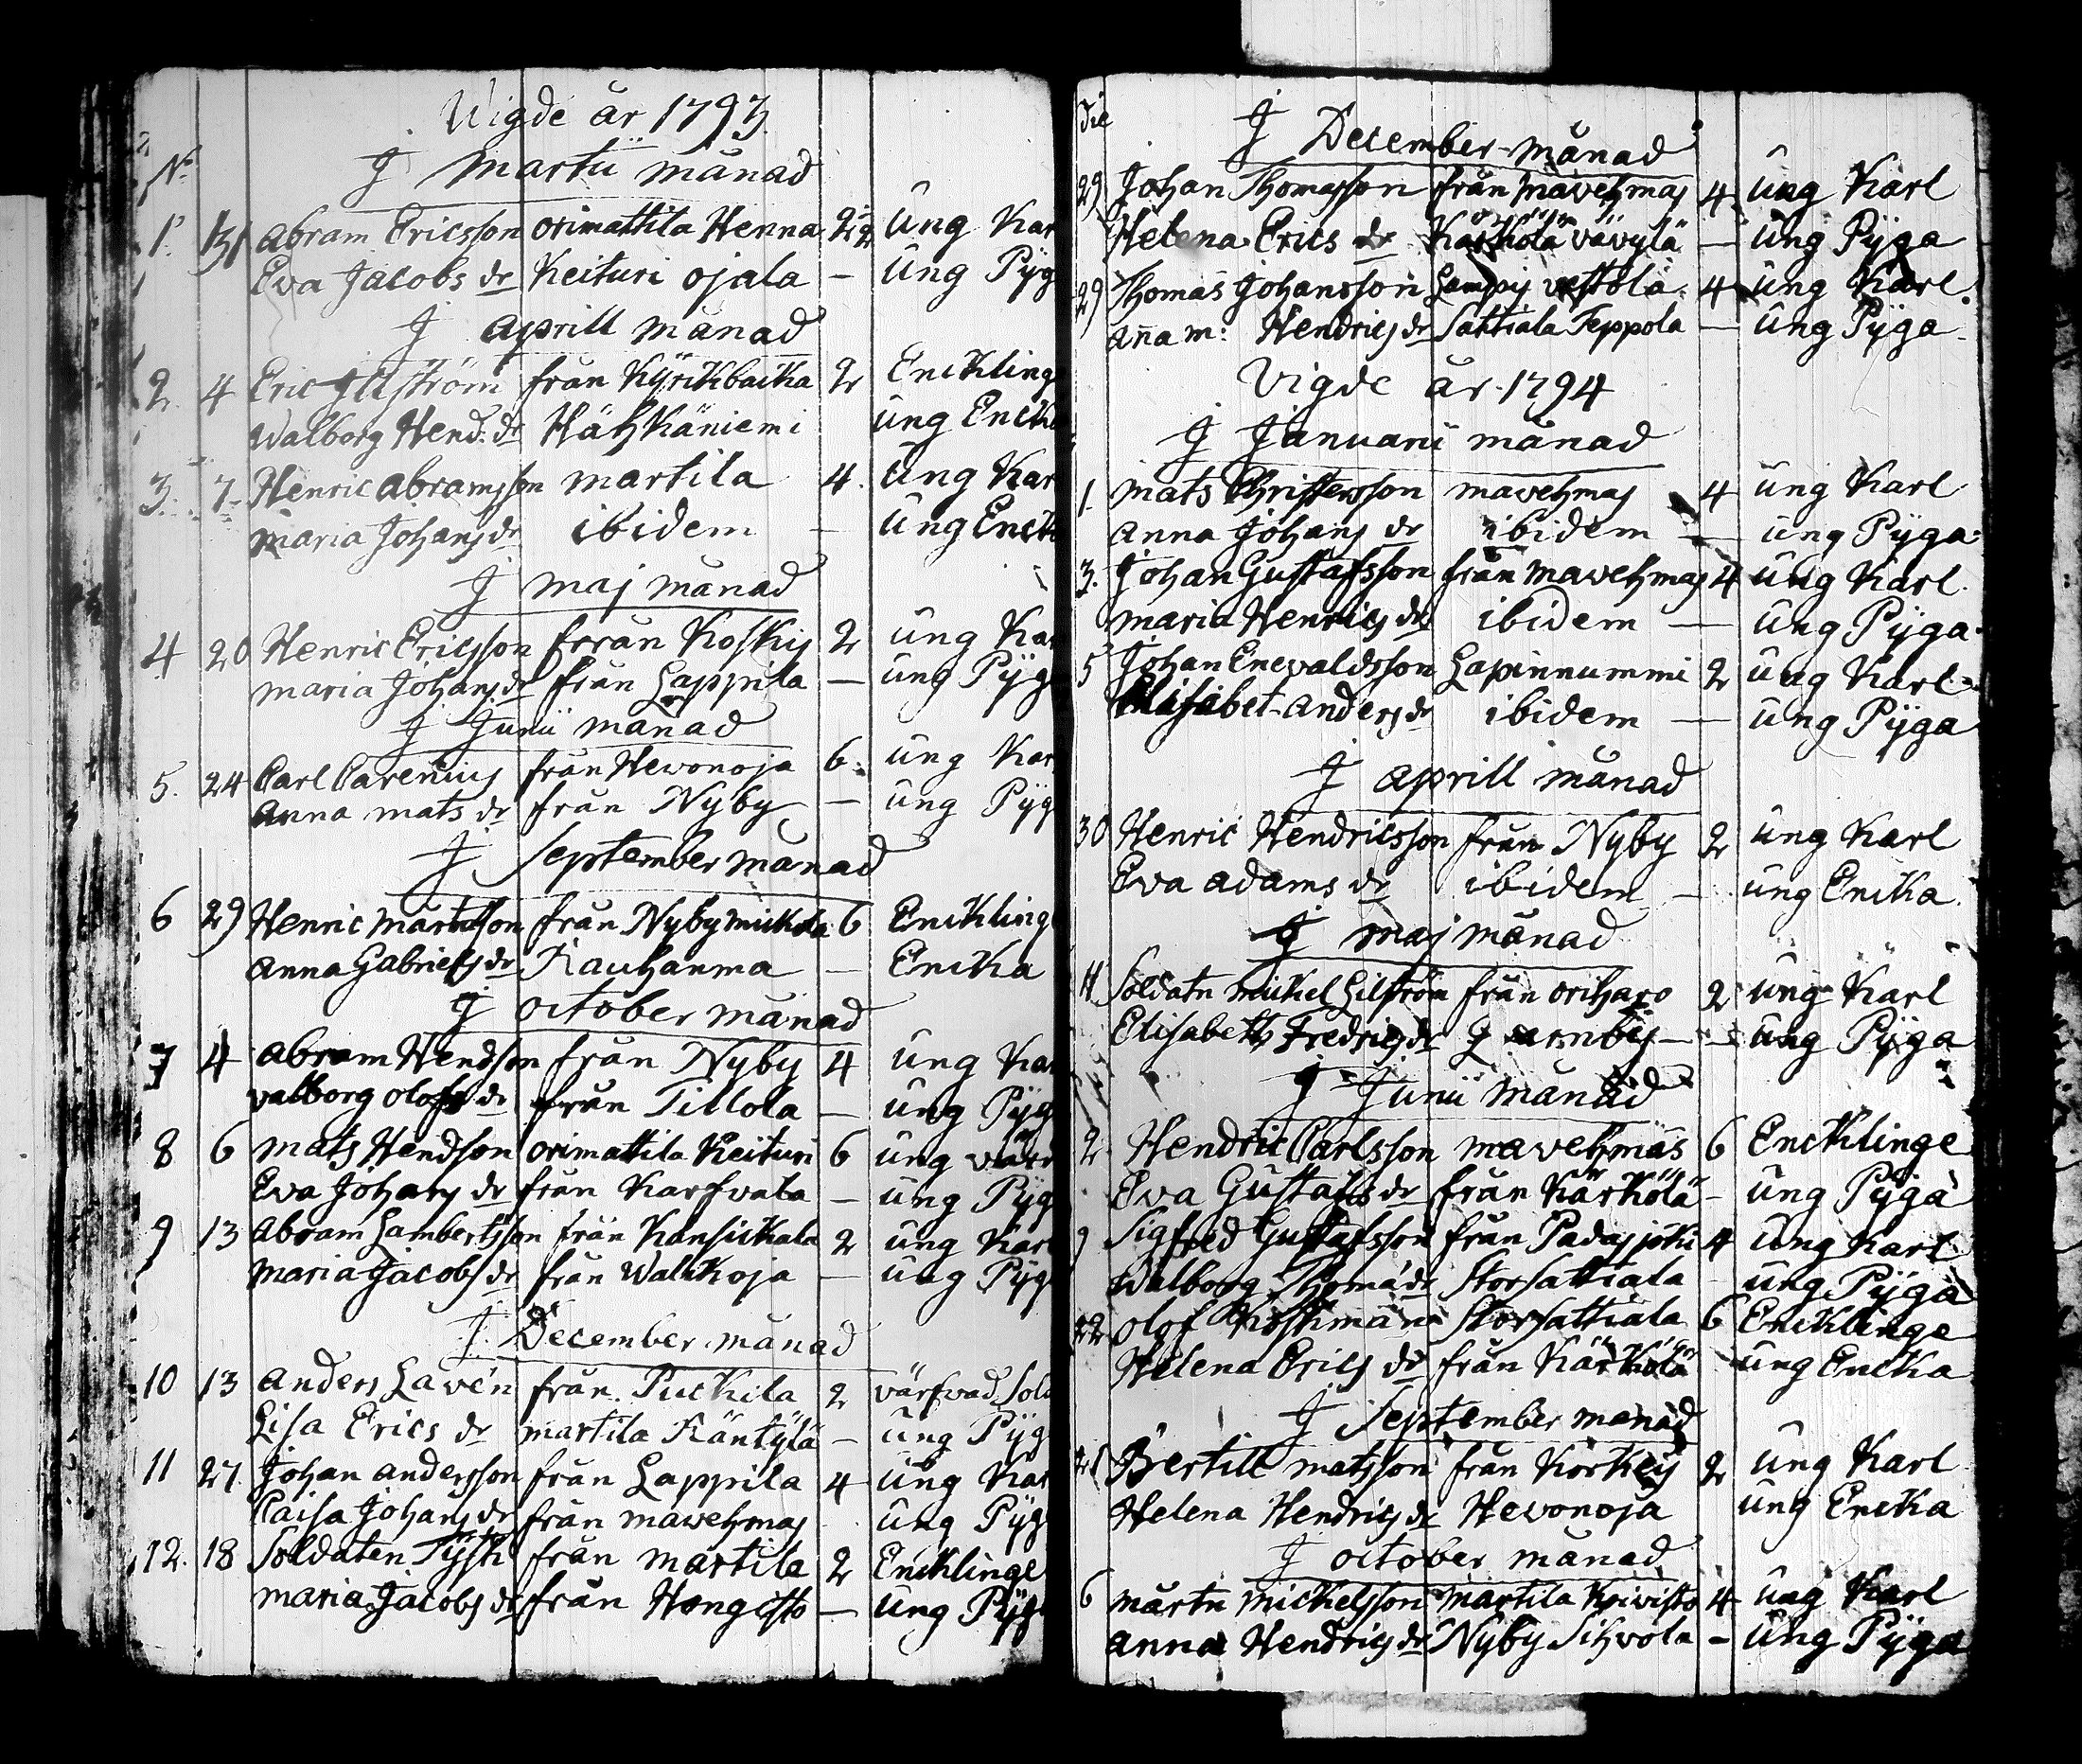 Wigde år 1793
No
J martii månad
1. 31 Abram Ericsson orimattila Henna 2 ung Kar
Eva Jacobs dr Keituri ojala — ung Pÿg
J aprill månad
2. 4 Eric från 2 Enckling
Walborg Hend. dr Hähkäniemi ung Enck
3. 7 Henric Abramsson martila 4. ung Kar
maria Johans dr ibidem – ung Enck
J maj månad
4 20 Henric Ericsson frrån Koskis 2 ung Kar
maria Johans dr från Lappila — ung Pÿg
J Junii månad
5. 24 Carl Carenius från Hevonoja 6. ung Kar
anna mats dr från Nyby — ung Pÿg
J September månad
6 29 Henric från Nyby 6 Enckling
anna Gabriels dr Kauhanma — Encka
J october månad
7 4 Abram Hendson från Nyby 4 ung Kar
valborg olofs dr från Tillola — ung Pÿg
8 6 mats Hendson orimattila Keituri 6 ung
Eva Johans dr från — ung Pÿg
9 13 Abram Lambertsson från Kansickala 2 ung Karl
maria Jacobs dr från — ung Pÿg
J December månad
10 13 anders Lavén från Puckila 2 värfvad Sold
Lisa Erics dr martila Käntÿlä — ung Pÿg
11 27. Johan andersson från Lappila 4 ung Kar
Caisa Johans dr från mavehmas ung Pÿg
12. 18 Soldaten Tÿsk från martila 2 Encklinge
maria Jacobs dr från Hongisto — ung Pÿg
die
J December månad
29 Johan Thomasson från mavehmas 4 ung Karl
Helena Erics dr Kärkölä vävylä — ung Pÿga
29 Thomas Johansson 4 ung Karl.
aña m: Hendrics dr Sattiala Teppola — ung Pÿga
Vigde år 1794
J Januarii månad
1 mats Christersson mavehmas 4 ung Karl
anna Johans dr ibidem — ung Pÿga
3. Johan Gustafsson från mavehmas 4 ung Karl.
maria Henrics dr ibidem — ung Pÿga
5 Johan Enevaldsson Lapinnummi 2 ung Karl
Elisabet anders dr ibidem — ung Pÿga
J aprill månad
30 Henric Hendricsson från Nyby 2 ung Karl
Eva adams dr ibidem — ung Encka
J maj månad
11 Soldatn mickel Lilström från oriharo 2 ung Karl
Elisabeth Fredrics dr — ung Pÿga
J Junii månad
2 Hendric Carlsson mavehmas 6 Encklinge
Eva Gustafs dr från Kärkölä – ung Pÿga
9 Sigfred Gustafsson från Padasjoki 4 ung Karl
Walborg Thoma dr Storsattiala ung Pÿga
22 olof Storsattiala 6 Encklinge
Helena Erics dr från Kärkölä ung Encka
J September månad
21 Bertill matsson från 2 ung Karl
Helena Hendrics dr Hevonoja ung Encka
J october månad
6 mårtn mickelsson martila Koivisto 4 ung Karl
anna Hendrics dr Nyby Sihvola – ung Pÿga